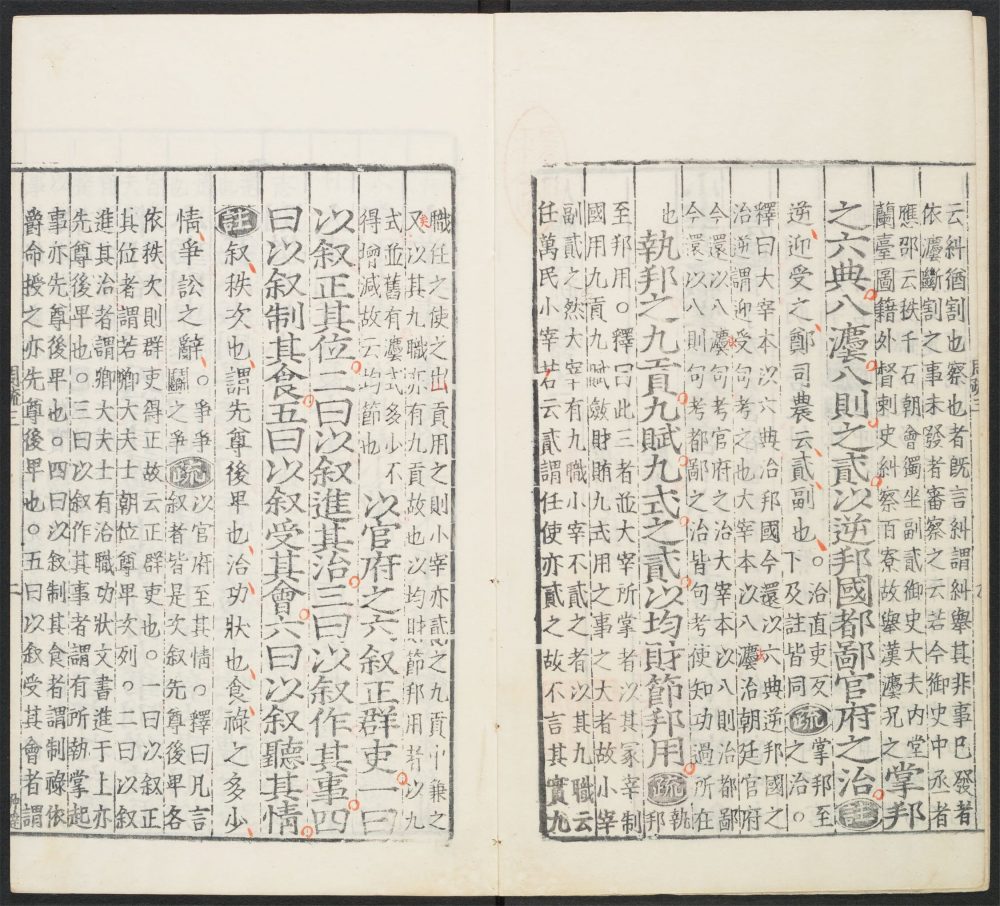 云糾猶割也察也者旣言糾謂糾舉其非事已發者
依灋斷割之事未發者審察之云若今御史中丞者
應邵云秩千石朝會獨坐副貳御史大夫内掌
蘭臺圖籍外督刺史糾察百寮故舉漢灋况之
掌邦
之六典八灋八則之貳以逆邦國都鄙官府之治註
逆迎受之鄭司農云貳副也
治直吏反
下及註皆同
疏
掌邦至
之治。
釋曰大宰本以六典治邦國今還以六典逆邦國之
治逆謂迎受句考之也大宰本以八灋治朝廷官府
今還以八灋句考官府之治大宰本以八則治都鄙
今還以八則句考都鄙之治皆句考使知功過所在
也
執邦之九貢九賦九式之貳以均財節邦用
疏
執邦
至邦用。釋曰此三者並大宰所掌者以其冢宰制
國用九貢九賦斂財賄九式用之事之大者故小宰
副貳之然大宰有九職小宰不貳之者以其九職云
任萬民小宰若云貳謂任使亦貳之故不言其實九
職任之使之出貢用之則小宰亦貳之九貢中兼之
又以其九職亦有九貢故也以均財節邦用者以九
式並舊有灋式多少不
得增減故云均節也
以官府之六叙正群吏一曰
以叙正其位二曰以叙進其治三曰以叙作其事四
曰以叙制其食五曰以叙受其會六曰以叙聽其情
註叙秩次也謂先尊後卑也治功狀也食祿之多少
情爭訟之辭。
爭爭
鬬之爭
疏
以官府至其情。釋曰凡言
叙者皆是次叙先尊後卑各
依秩次則群吏得正故云正群吏也。一曰以叙正
其位者謂若卿大夫士朝位尊卑次列。二曰以叙
進其治者謂卿大夫士有治職功狀文書進于上亦
先尊後卑也。三曰以叙作其事者謂有所執掌起
事亦先尊後卑也。四曰以叙制其食者謂制祿依
爵命授之亦先尊後卑也。五曰以叙受其會者謂